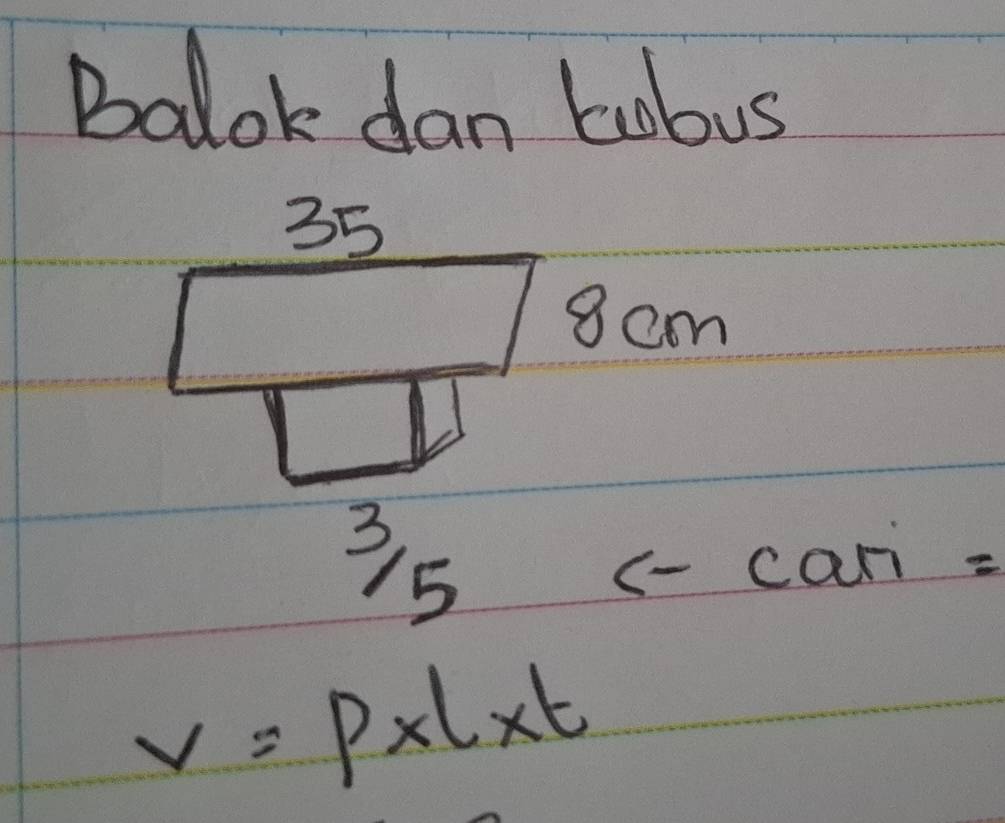 Balok dan kubus
35
8 cm
3/5 <- cari =
v = p x l x t